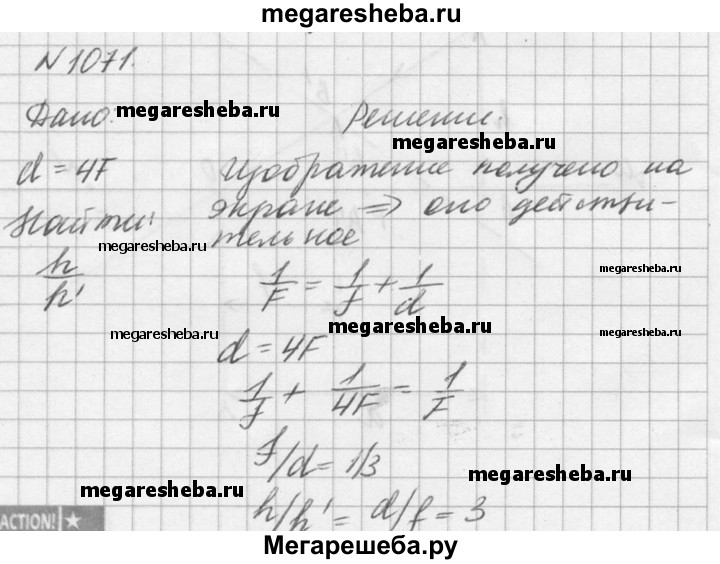 megaresheba.ru
N 1071.
Дано:
megaresheba.ru
Решение.
megaresheba.ru
d = 4F
Изображение получено на
Найти:
экране => оно действи-
тельное
megaresheba.ru
h/h'
1/F = 1/f + 1/d
megaresheba.ru
megaresheba.ru
megaresheba.ru
megaresheba.ru
d = 4F
1/f + 1/4F = 1/F
f/d = 1/3
megaresheba.ru
megaresheba.ru
h/h' = d/f = 3
ACTION!
Мегарешеба.ру